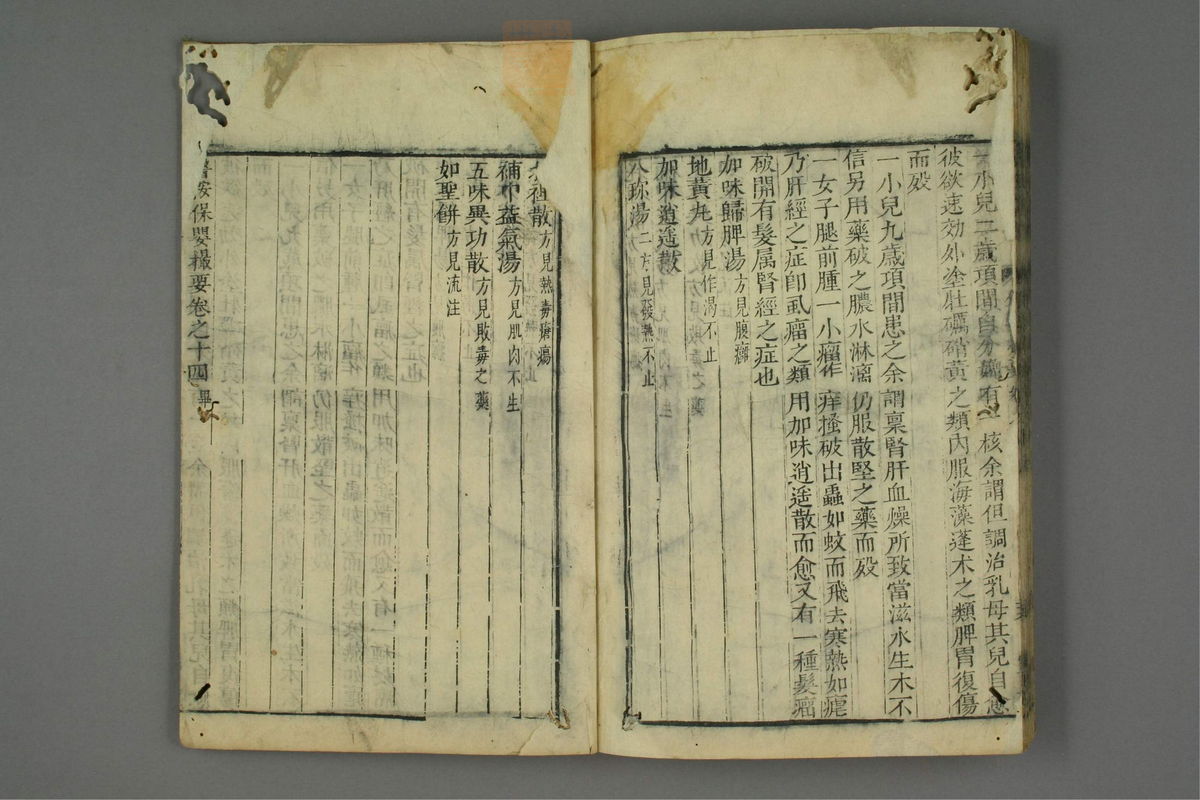 一小兒二歲項間自分娩有一核余謂但調治乳母其兒自愈
彼欲速効外塗牡礪硝黃之類內服海藻蓬术之類脾胃復傷
而歿
一小兒九歲項間患之余謂稟腎肝血燥所致當滋水生木不
信另用藥破之膿水淋漓仍服散堅之藥而歿
一女子腿前腫一小瘤作痒搔破出蟲如蚊而飛去寒熱如瘧
乃肝經之症卽虱瘤之類用加味逍遙散而愈又有一種髮瘤
破開有髮属腎經之症也
加味歸脾湯方見腹癰
地黃丸方見作渴不止
加味逍遙散
八珍湯二方見發熱不止
祖散方見熱毒瘡瘍
補中益氣湯方見肌肉不生
五味異功散方見敗毒之藥
如聖餅方見流注
醫按保嬰撮要卷之十四畢